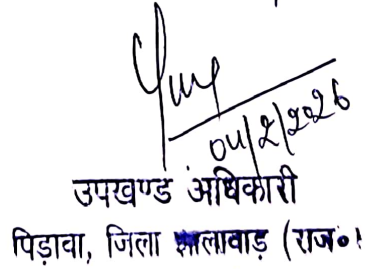 04/2/2026
उपखण्ड अधिकारी
पिड़ावा, जिला झालावाड़ (राज०)